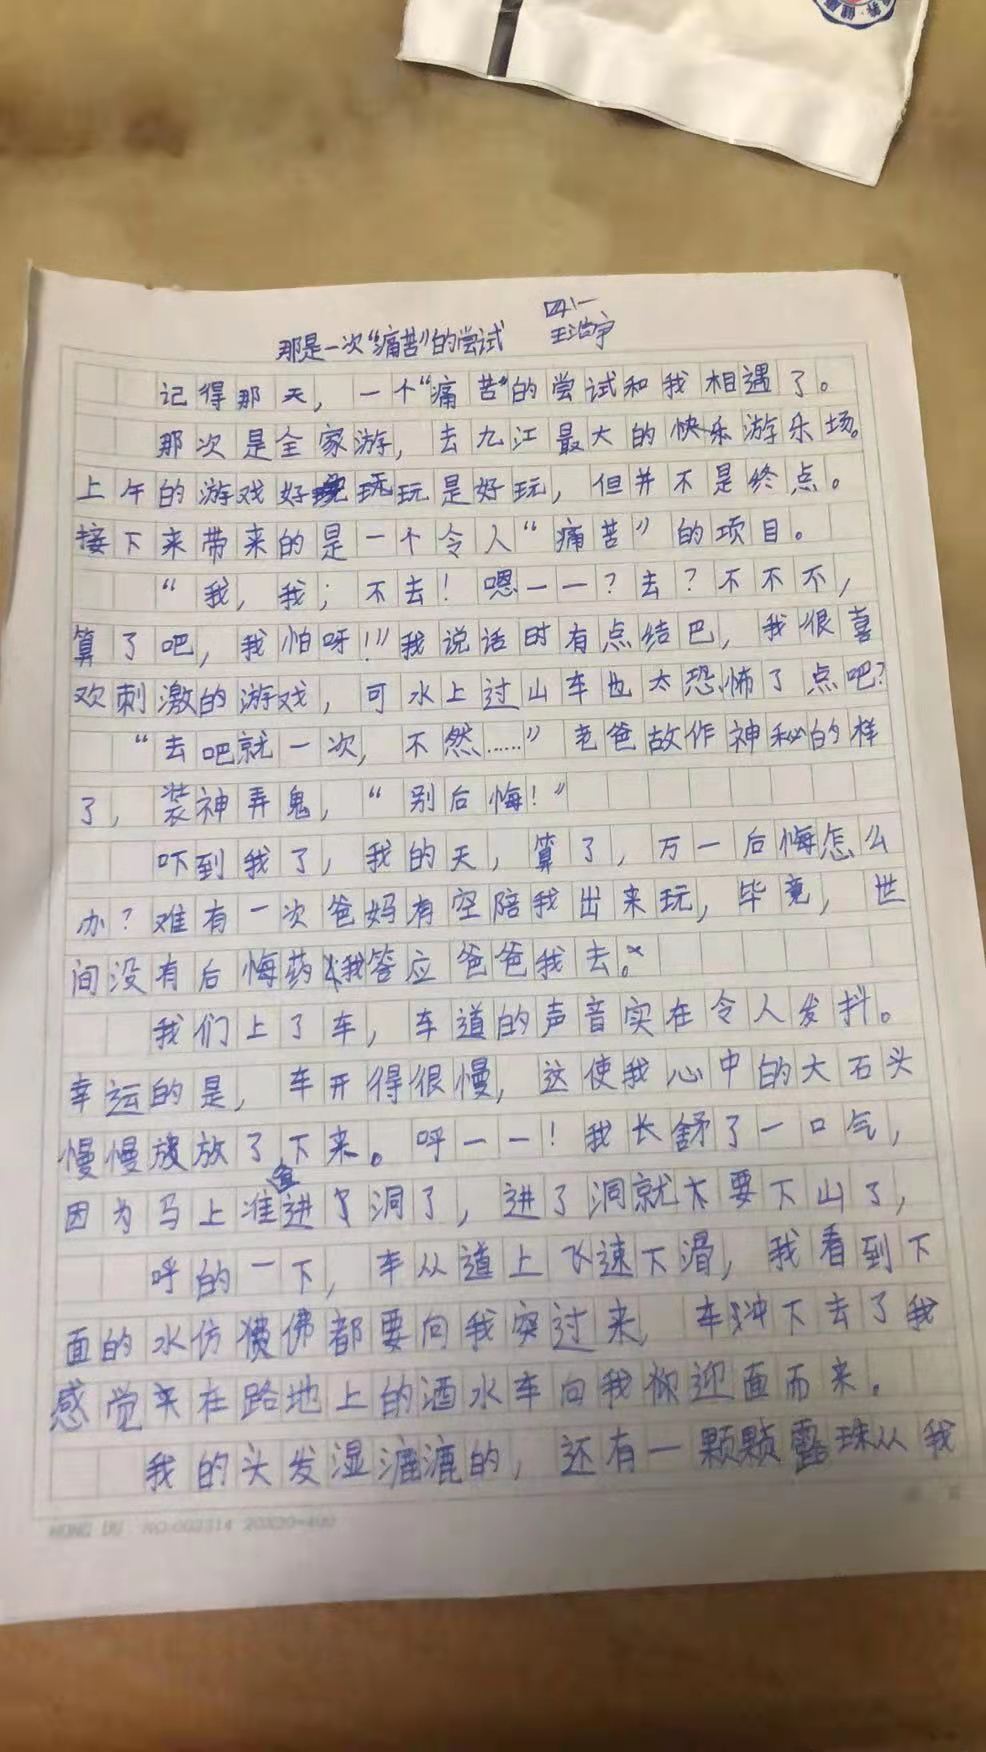 四1一
那是一次“痛苦”的尝试
记得那天，一个“痛苦”的尝试和我相遇了。
那次是全家游，去九江最大的快乐游乐场。
上午的游戏好玩玩是好玩，但并不是终点。
接下来带来的是一个令人“痛苦”的项目。
“我，我；不去！嗯一一？去？不不不，
算了吧，我怕呀！”我说话时有点结巴，我很喜
欢刺激的游戏，可水上过山车也太恐怖了点吧？
“去吧就一次，不然……”老爸故作神秘的样
了，装神弄鬼，“别后悔！”
吓到我了，我的天，算了，万一后悔怎么
办？难有一次爸妈有空陪我出来玩，毕竟，世
间没有后悔药我答应爸爸我去。
我们上了车，车道的声音实在令人发抖。
幸运的是，车开得很慢，这使我心中的大石头
慢慢放了下来。呼一一！我长舒了一口气，
因为马上准备进了洞了，进了洞就太要下山了，
呼的一下，车从道上飞速下滑，我看到下
面的水仿佛都要向我突过来，车冲下去了我
感觉来在路地上的洒水车向我你迎面而来。
我的头发湿漉漉的，还有一颗颗露珠从我